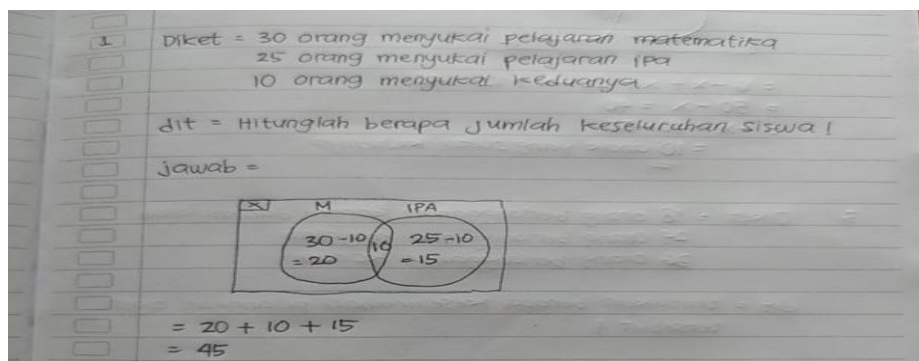 1 Diket = 30 orang menyukai pelajaran matematika
25 orang menyukai pelajaran IPA
10 orang menyukai keduanya
dit = Hitunglah berapa jumlah keseluruhan siswa !
jawab =
X M IPA
30-10 10 25-10
= 20 = 15
= 20 + 10 + 15
= 45